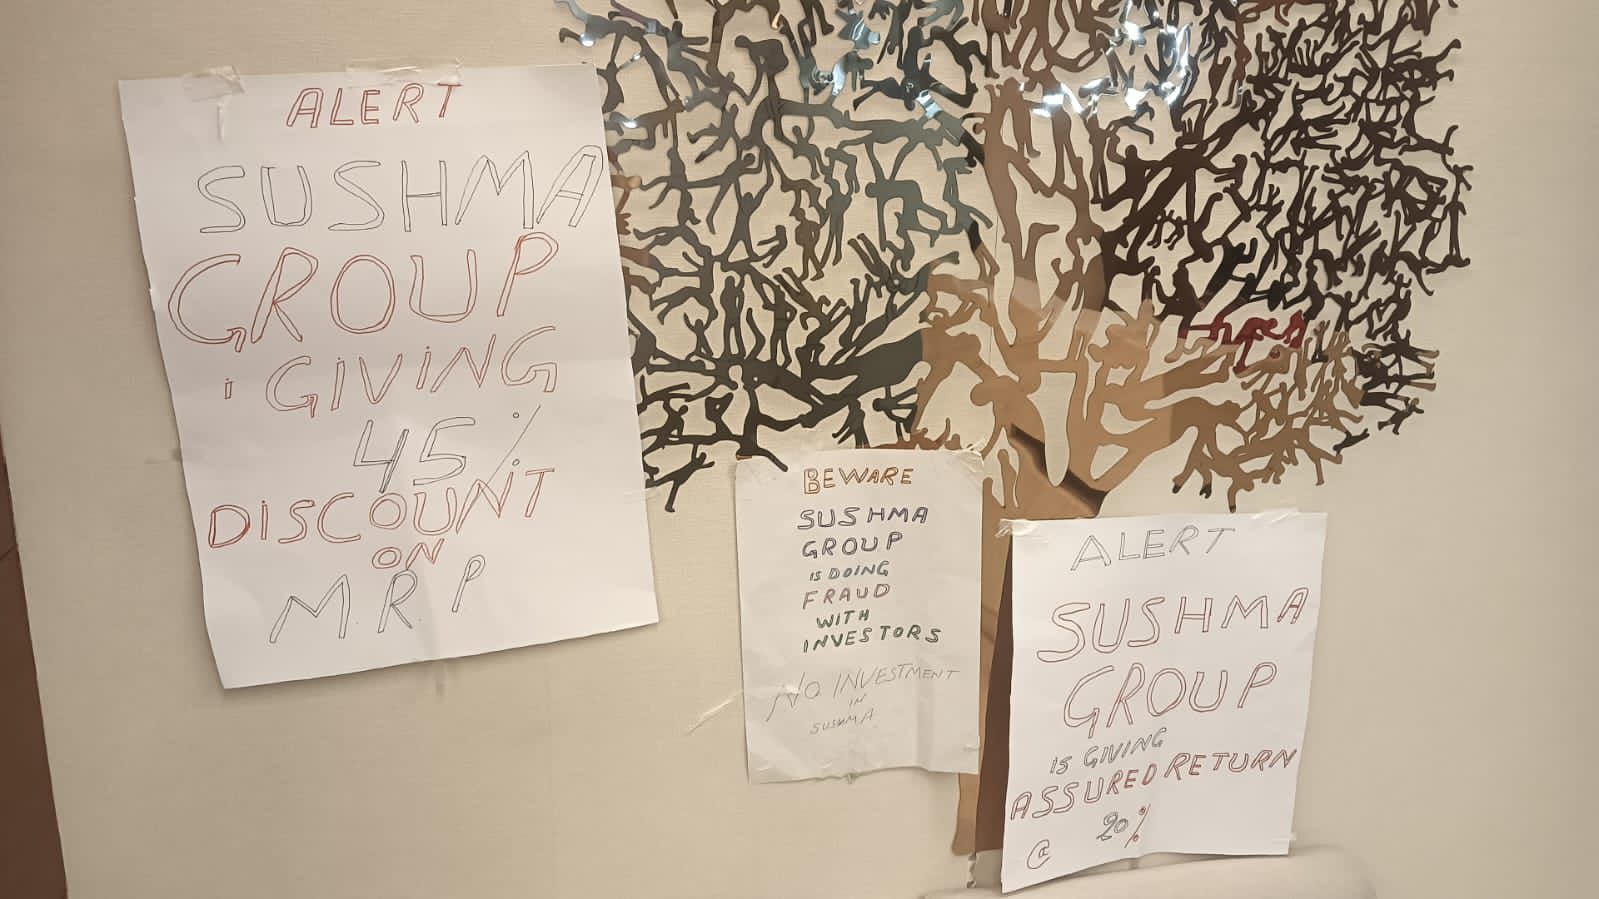 ALERT
SUSHMA
GROUP
i GIVING
45%
DISCOUNT
ON
MRP
BEWARE
SUSHMA
GROUP
IS DOING
FRAUD
WITH
INVESTORS
NO INVESTMENT
IN
SUSHMA
ALERT
SUSHMA
GROUP
IS GIVING
ASSURED RETURN
@ 20%